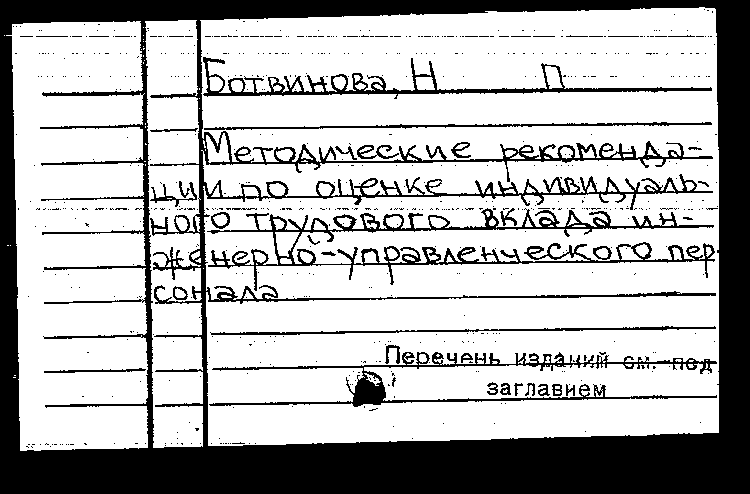 Ботвинова, Н П
Методические рекоменда-
ции по оценке индивидуаль-
ного трудового вклада ин-
женерно-управленческого пер
сонала
Перечень изданий см. под
заглавием